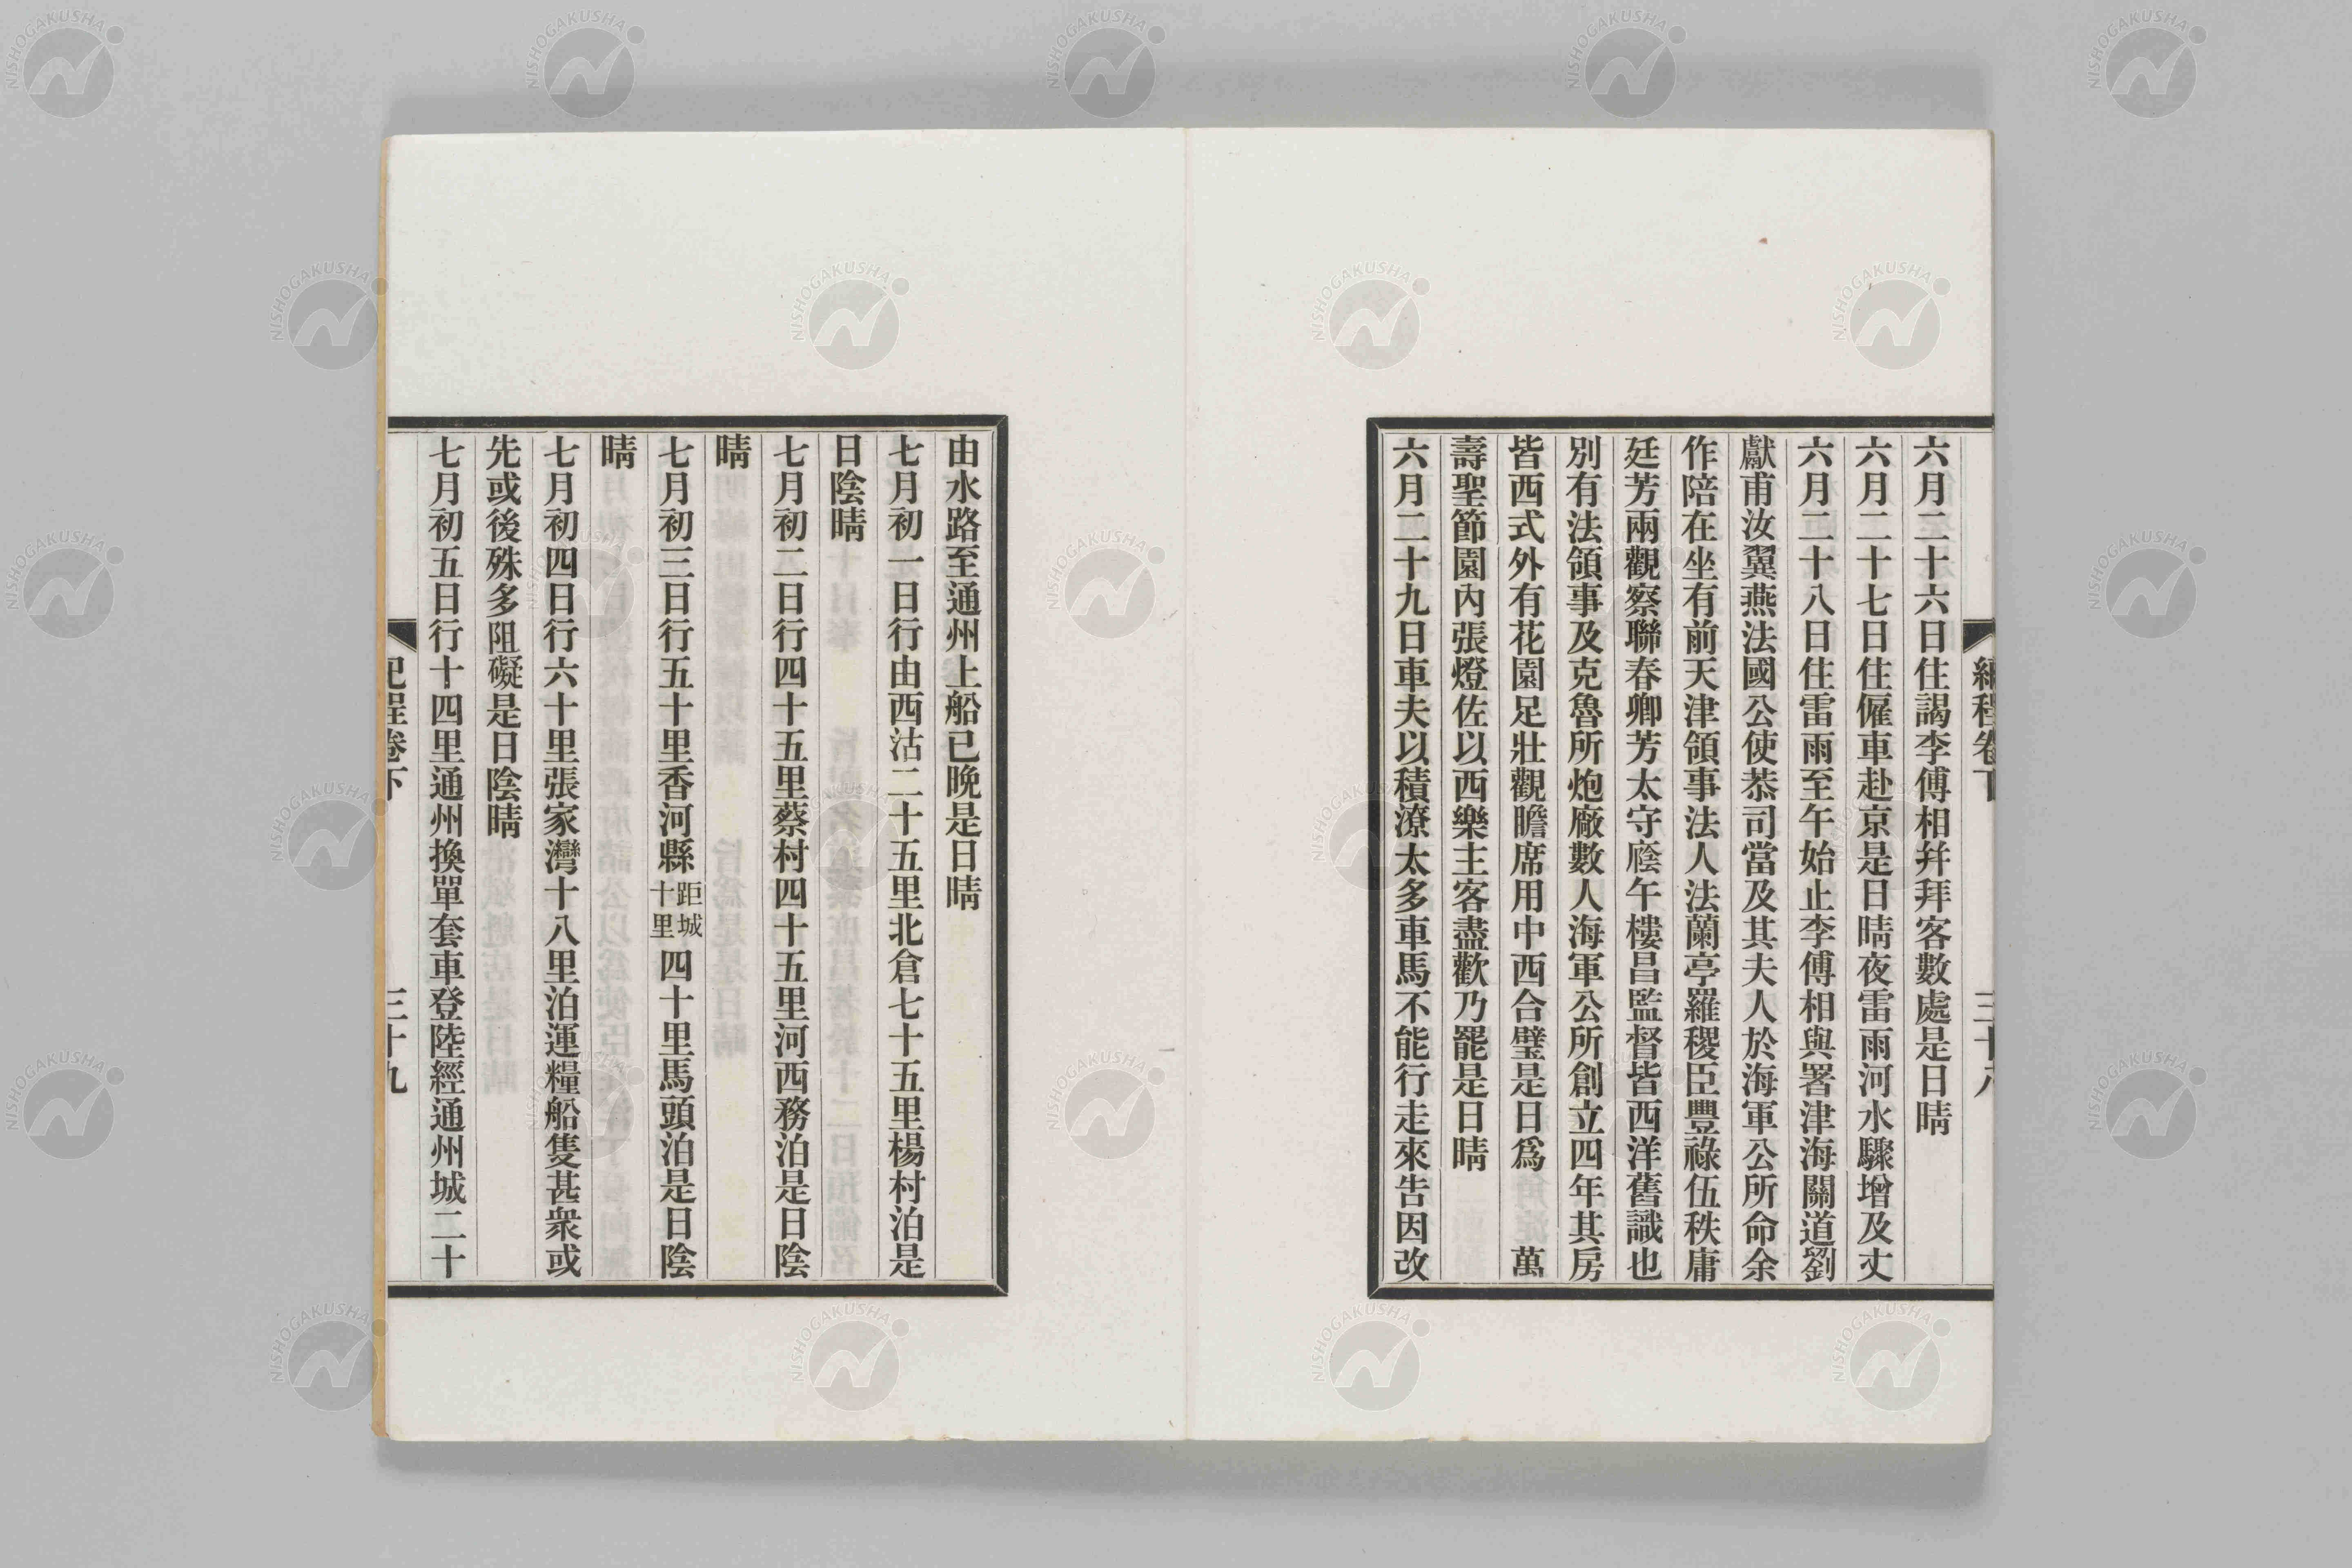 六月二十六日住謁李傅相幷拜客數處是日晴
六月二十七日住僱車赴京是日晴夜雷雨河水驟增及丈
六月二十八日住雷雨至午始止李傅相與署津海關道劉
獻甫汝翼燕法國公使恭司當及其夫人於海軍公所命余
作陪在坐有前天津領事法人法蘭亭羅稷臣豐祿伍秩庸
廷芳兩觀察聯春卿芳太守廕午樓昌監督皆西洋舊識也
別有法領事及克魯所炮廠數人海軍公所創立四年其房
皆西式外有花園足壯觀瞻席用中西合璧是日爲　　萬
壽聖節園內張燈佐以西樂主客盡歡乃罷是日晴
六月二十九日車夫以積潦太多車馬不能行走來告因改
三十八
由水路至通州上船已晚是日晴
七月初一日行由西沽二十五里北倉七十五里楊村泊是
日陰晴
七月初二日行四十五里蔡村四十五里河西務泊是日陰
晴
七月初三日行五十里香河縣距城十里四十里馬頭泊是日陰
晴
七月初四日行六十里張家灣十八里泊運糧船隻甚衆或
先或後殊多阻礙是日陰晴
七月初五日行十四里通州換單套車登陸經通州城二十
紀程卷下
三十九
NISHOGAKUSHA